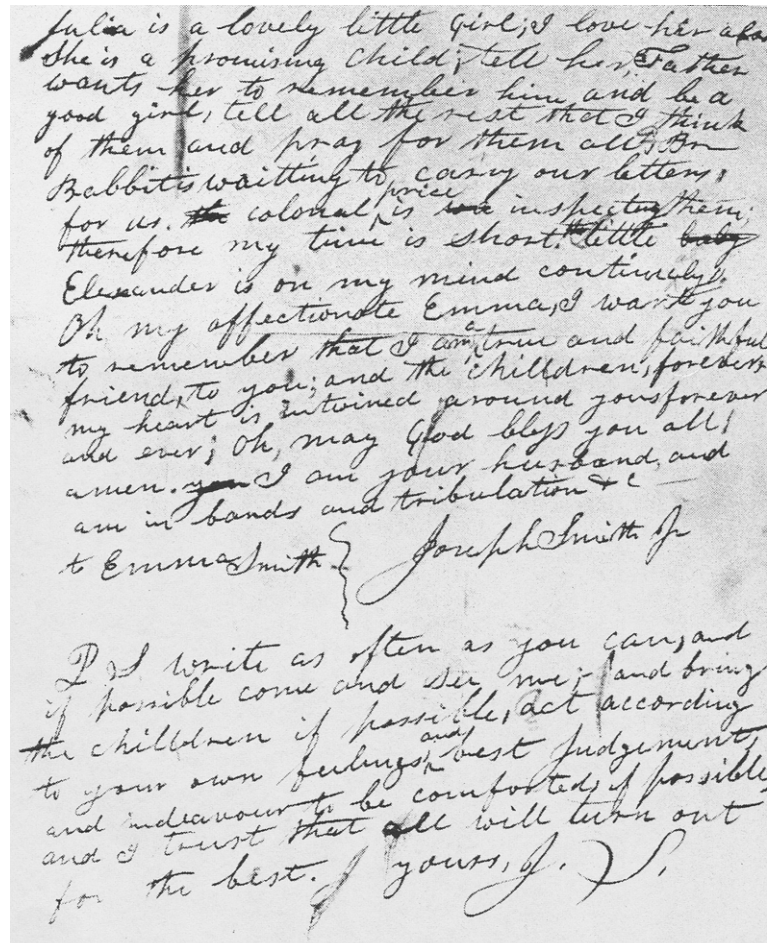 Julia is a lovely little girl; I love her also
She is a promising child; tell her, Father
wants her to remember him and be a
good girl, tell all the rest that I think
of them and pray for them all, Br
Babbit is waitting to carry our letters,
for us. the colonal, price is inspecting them;
therefore my time is short. the little baby
Elexander is on my mind continuely.
Oh my affectionate Emma, I want you
to remember that I am a true and faithful
friend, to you; and the chilldren, forever,
my heart is intwined around yours forever
and ever; Oh, may God bless you all;
amen. you I am your husband, and
am in bands and tribulation &c
to Emma Smith Joseph Smith Jr
P S write as often as you can, and
if possible come and see me; and bring
the chilldren if possible, act according
to your own feelings and best Judgement,
and indeavour to be comforted, if possible,
and I trust that all will turn out
for the best. yours, J. S.